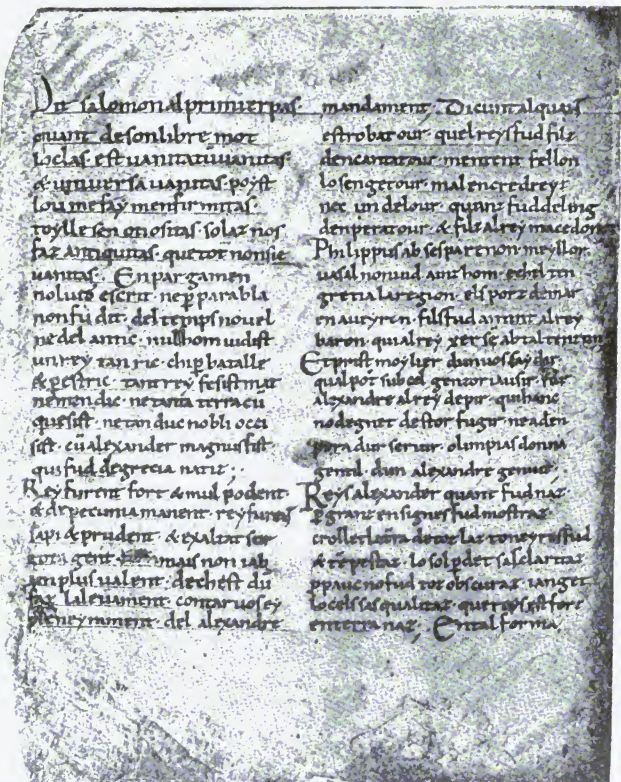 Dit salomon al primier pas
quant de son libre mot
lo clas · est uanitatu uanitas
& uniuersa uanitas · poyst
lou me fay menfirmitas
toylle sen otiositas · solaz nos
faz antiquitas · que tot non sie
uanitas · En pargamen
no luid escrit · ne p parabla
non fu dit · del temps nouel
ne del antic · nulls hom uidist
un rey tan ric · chi p batalle
& p estric · tant rey fesist mat
ne mendic · ne tanta terra cu
quesist · ne tan duc nobli occi
sist · cu alexander magnus fist
qui fud de grecia natiz
Rey furent fort & mul podent
& de pecunia manent · rey furent
sapi & prudent · & exaltat sor
tota gent · mais non i ab
un plus ualent · de chest du
faz laleuament · contar uos ey
pleneyrament · del alexandre
mandament · Dicunt alquant
estrobatour · quel reys fud filz
dencantatour · mentent fellon
losengetour · mal en credreyz
nec un de lour · quant fud de ling
denperatour · & filz al rey macedonor
Philippus ab ses pare non · meyllor
uasal non uid ainz hom · echel ten
gretia la region · els porz de mar
en aueyron · fils fud amint al rey
baron · qui al rey xersem ab tal tenzon
Et prist moylier dun uos say dir
qual pot sub cel genzor iausir · sor
alexandre al rey depir · qui hanc
no degnet destor fugir · ne ad en
perador seruir · olimpias donna
gentil · dun alexandre genuit
Reys alexander quant fud naz
p granz ensignes fud mostraz
crollet la terra de toz laz · toneyres fud
& tepestaz · lo sol perdet sas claritaz
p pauc no fud toz obscuraz · ianget
lo cels sas qualitaz · que reys est forz
en terra naz · En tal forma